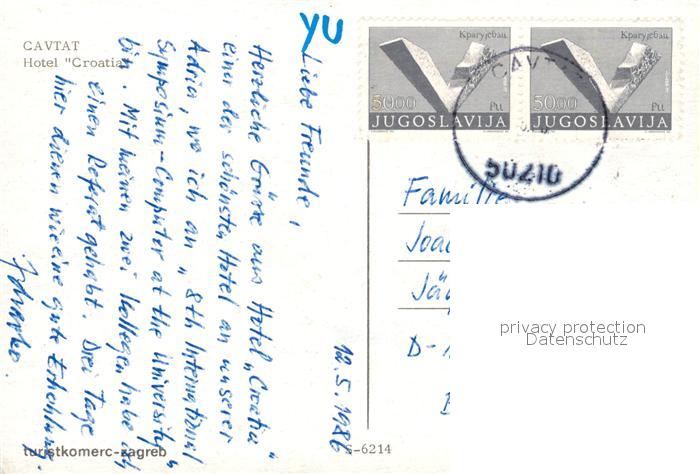 CAVTAT
Hotel "Croatia"
YU
Liebe Freunde,
Herzliche Grüsse aus Hotel „Croatia"
eina der schönsten Hotel an unserer
Adria, wo ich an „8th International
Symposium-Computer at the University"
bin. Mit meinen zwei Kollegen habe ich
einen Referat gehabt. Drei Tage
hier dienen wie eine gute Erholung.
12.5.1986
turistkomerc-zagreb
S-6214
Крагујевац
5000
Pтt
JUGOSLAVIJA
Крагујевац
5000
Pтt
JUGOSLAVIJA
CAVTAT
50210
Familie
Joa
Jä
D-
privacy protection
Datenschutz